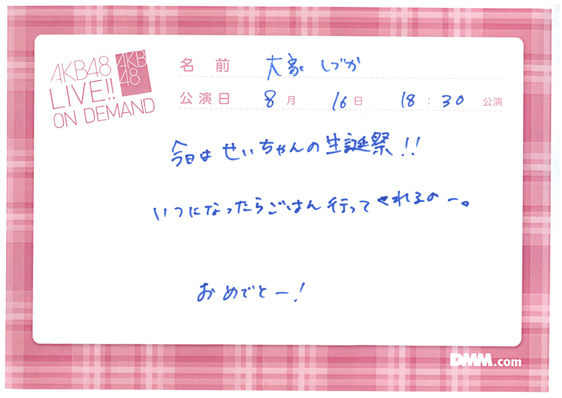 AKB48
LIVE!!
ON DEMAND
AKB
48
名 前 大家 しづか
公演日 8月 16日 18:30 公演
今日は せいちゃんの 生誕祭!!
いつになったらごはん 行ってくれるのー。
おめでとー!
DMM.com